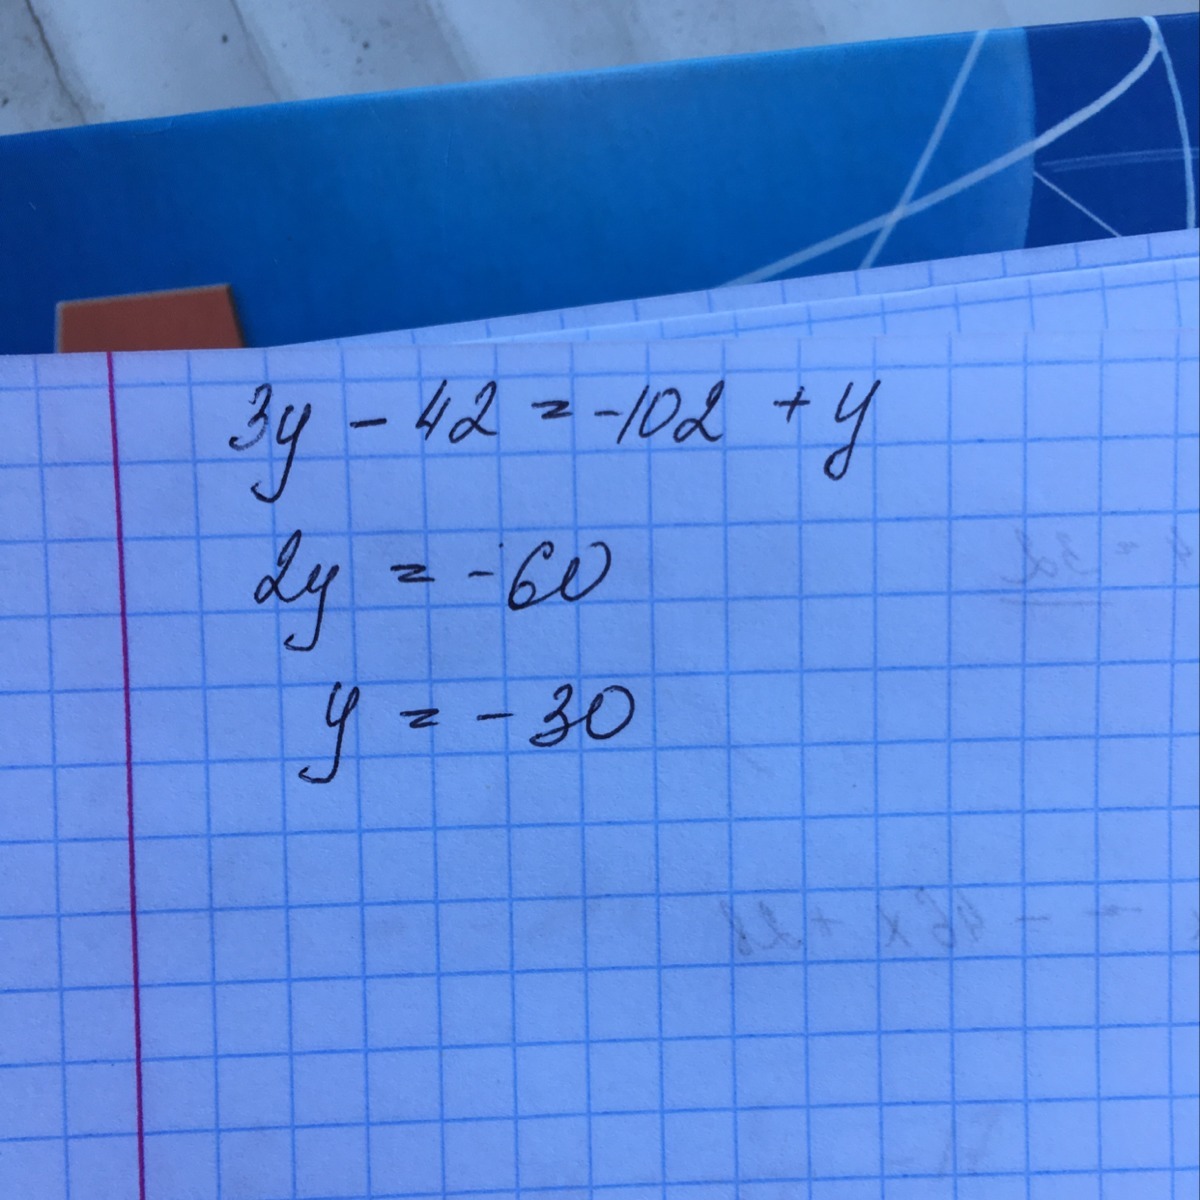 3y - 42 = -102 + y
2y = -60
y = -30